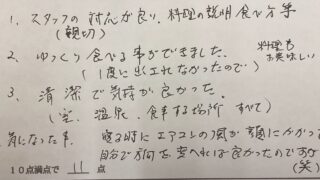 1、スタッフの対応が良い、料理の説明食べ方等
(親切)
2、ゆっくり食べる事ができました。
(1度に出されなかったので)
料理も
お美味しい
3、清潔で気持が良かった。
(室、温泉、食事する場所 すべて)
気になった事、寝る時にエアコンの風が顔にかかっ
自分で方向を変へれば良かったのですが
(笑)
10点満点で 11 点